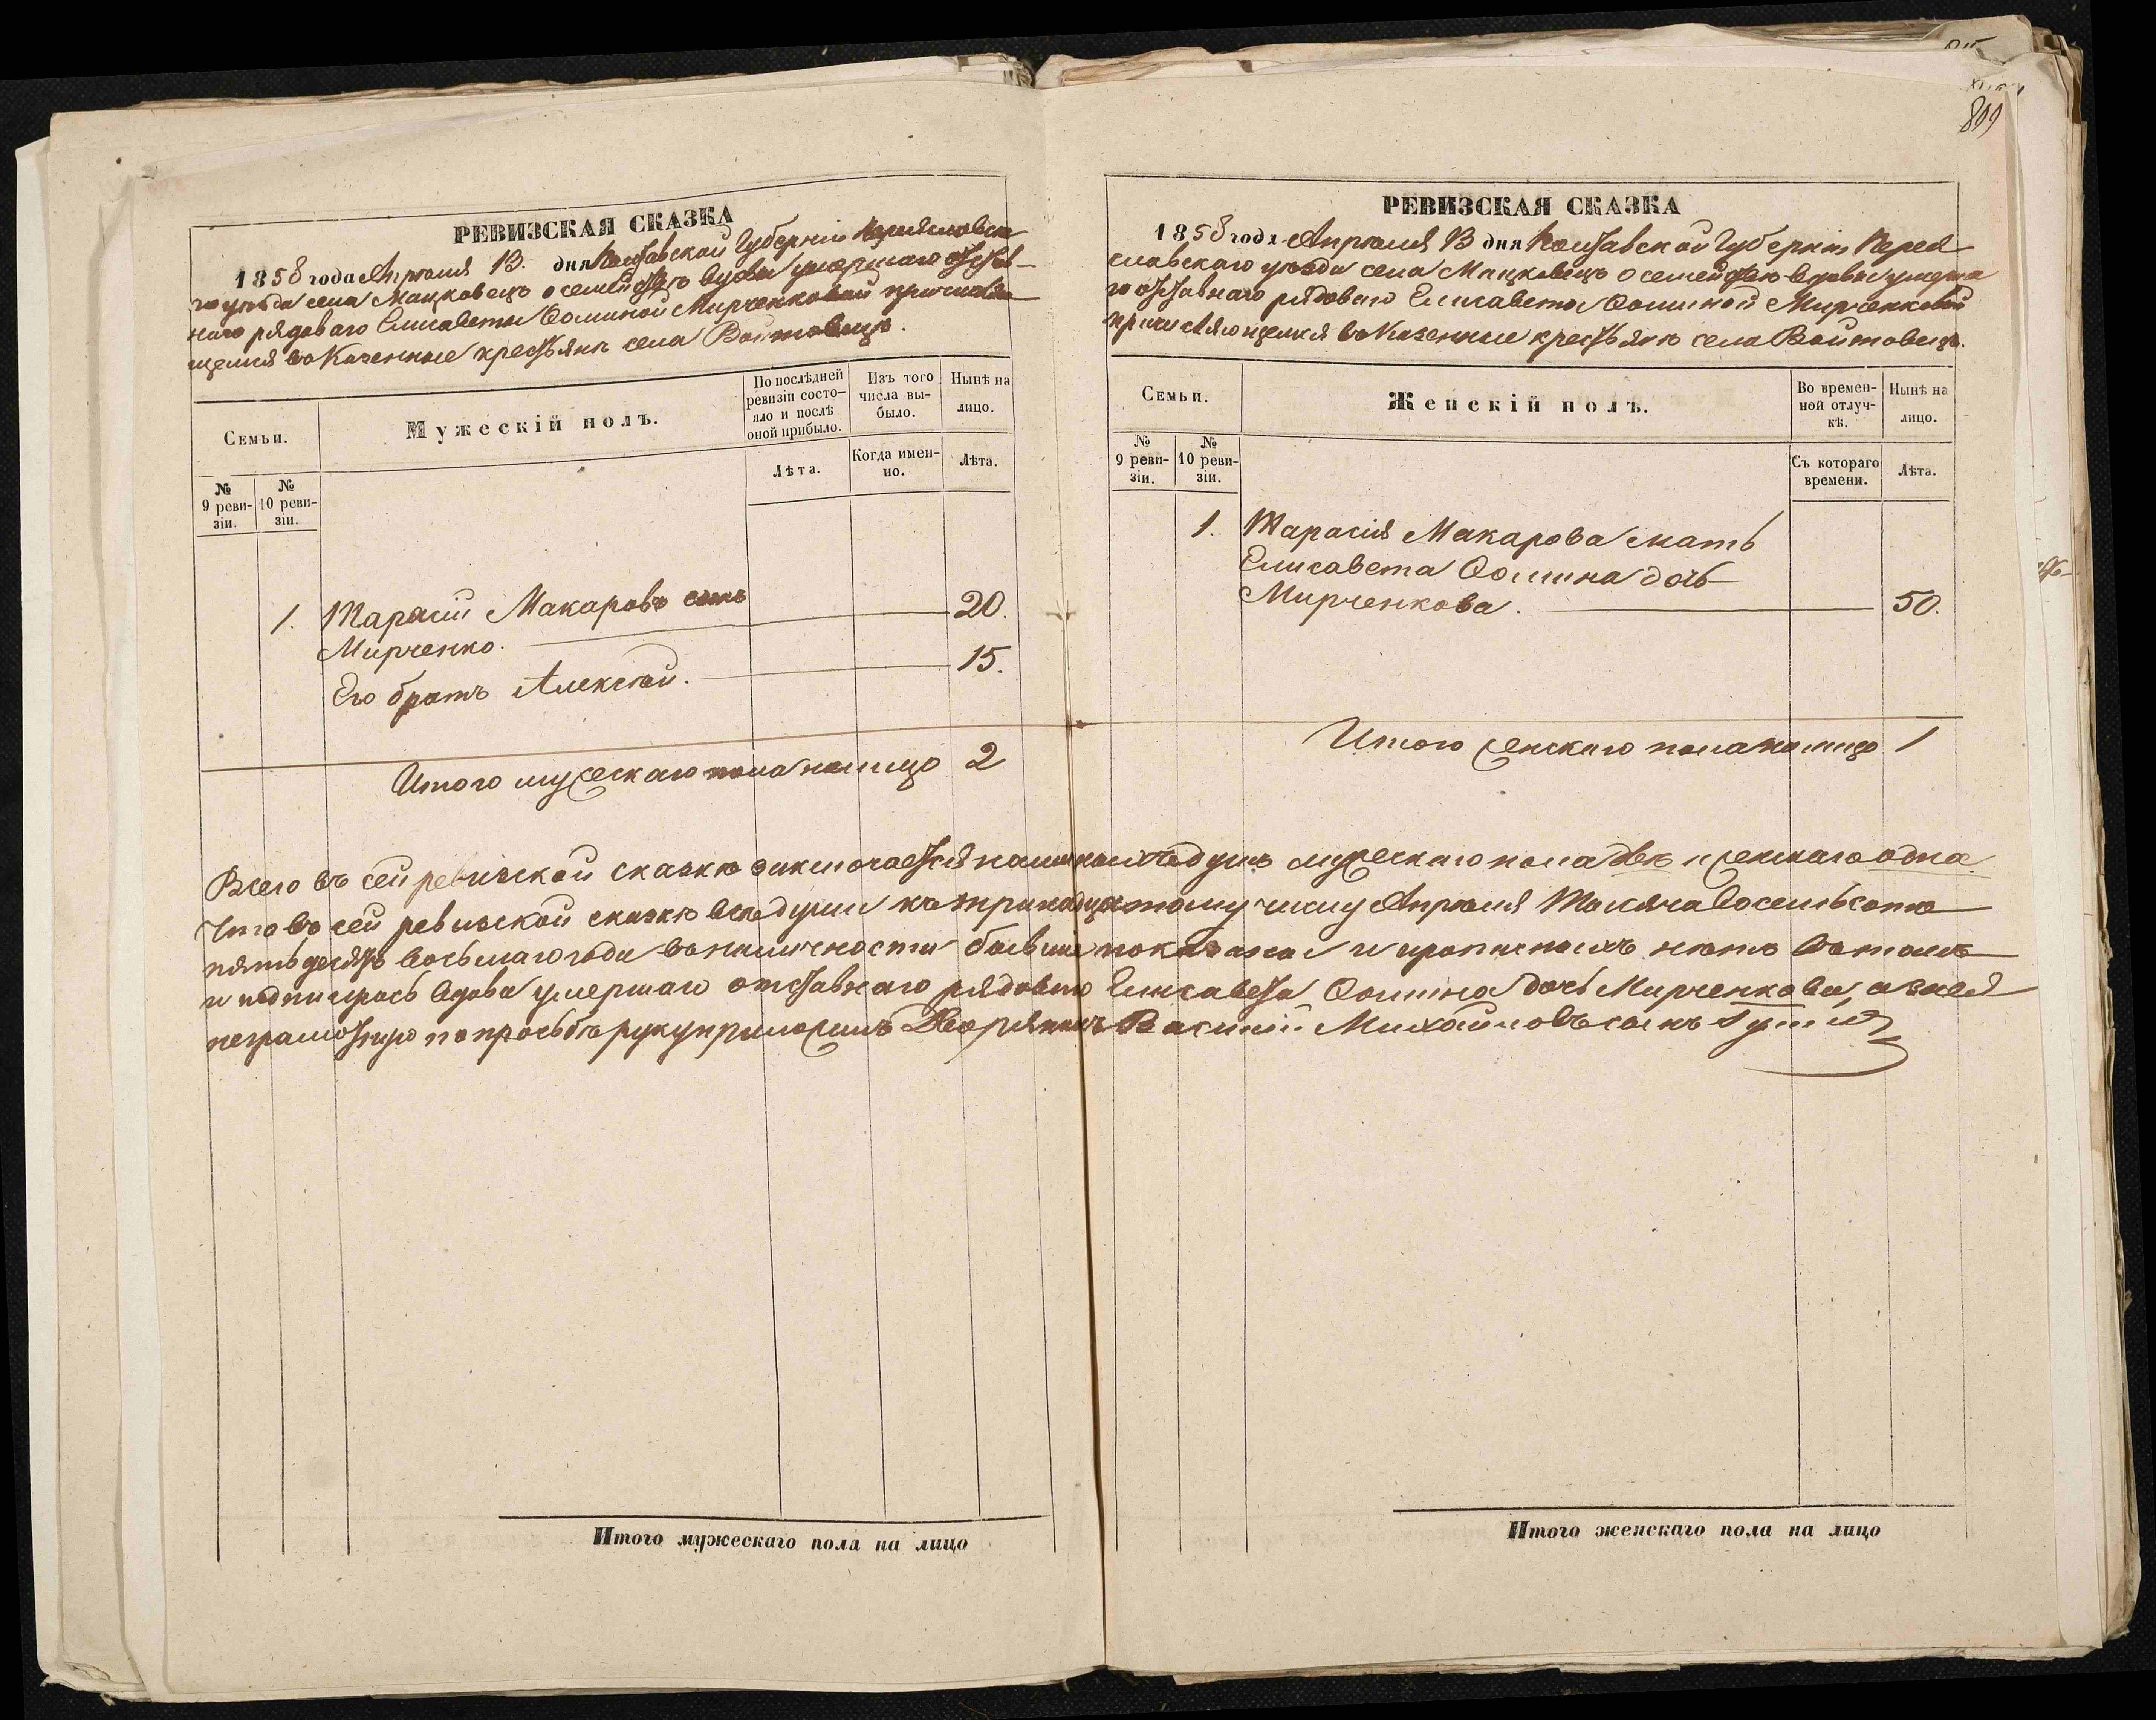 899
РЕВИЗСКАЯ СКАЗКА
1858 года Апрѣля 13. дня Полтавской Губерніи Переяславска
го уѣзда села Мацковецъ о семействѣ вдовы умершаго отстав-
наго рядоваго Елисаветы Ѳоминой Мирченковой причисляю
щемся въ Казенные крестьяне села Войтовецъ.
Семьи.
Мужескій полъ.
По послѣдней ревизіи состо-яло и послѣ оной прибыло.
Изъ того числа вы-было.
Нынѣ на лицо.
№ 9 реви-зіи.
№ 10 реви-зіи.
Лѣта.
Когда имен-но.
Лѣта.
1. Тарасій Макаровъ сынъ
Мирченко. 20.
Его братъ Алексѣй. 15.
Итого мужескаго пола на лицо 2
РЕВИЗСКАЯ СКАЗКА
1858 года Апрѣля 13 дня Полтавской Губерніи Перея
славскаго уѣзда села Мацковецъ о семействѣ вдовы умерша
го отставнаго рядоваго Елисаветы Ѳоминой Мирченковой
причисляющемся въ Казенные крестьяне села Войтовецъ.
Семьи.
Женскій полъ.
Во времен-ной отлуч-кѣ.
Нынѣ на лицо.
№ 9 реви-зіи.
№ 10 реви-зіи.
Съ котораго времени.
Лѣта.
1. Тарасія Макарова мать
Елисавета Ѳомина дочь
Мирченкова. 50.
Итого женскаго пола на лицо 1
Всего въ сей ревизской сказкѣ заключается наличныхъ душъ мужескаго пола двѣ и женскаго одна.
Что въ сей ревизской сказкѣ всѣ души къ тринадцатому числу Апрѣля Тысяча восемьсотъ
пятьдесятъ восьмаго года въ наличности бывшія показаны и прописныхъ нѣтъ въ томъ
и подписуюсь вдова умершаго отставнаго рядоваго Елисавета Ѳомина дочь Мирченкова, а за нея
неграмотную по просьбѣ руку приложилъ Дворянинъ Василій Михайловъ сынъ
Итого мужескаго пола на лицо
Итого женскаго пола на лицо